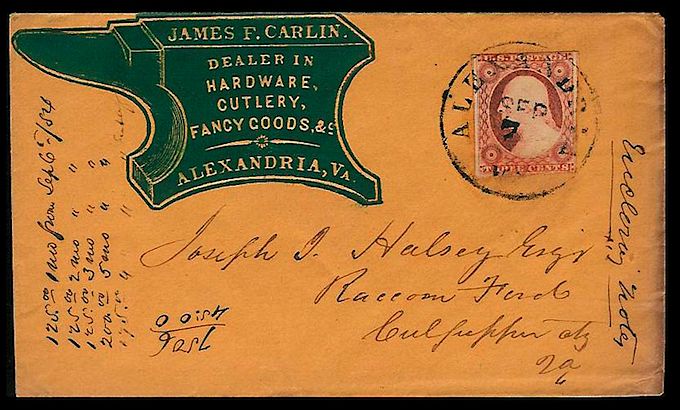 JAMES F. CARLIN.
DEALER IN
HARDWARE,
CUTLERY,
FANCY GOODS, &c
ALEXANDRIA, VA.
U.S. POSTAGE
THREE CENTS
ALEXANDRIA
SEP
Joseph J. Halsey Esqr
Raccoon Ford
Culpepper Cty
Va
Enclosing Notes
125.00 1 mo from Sep 6th/54
125.00 2 mo " "
125.00 3 mo " "
200.00 5 mo " "
175.00